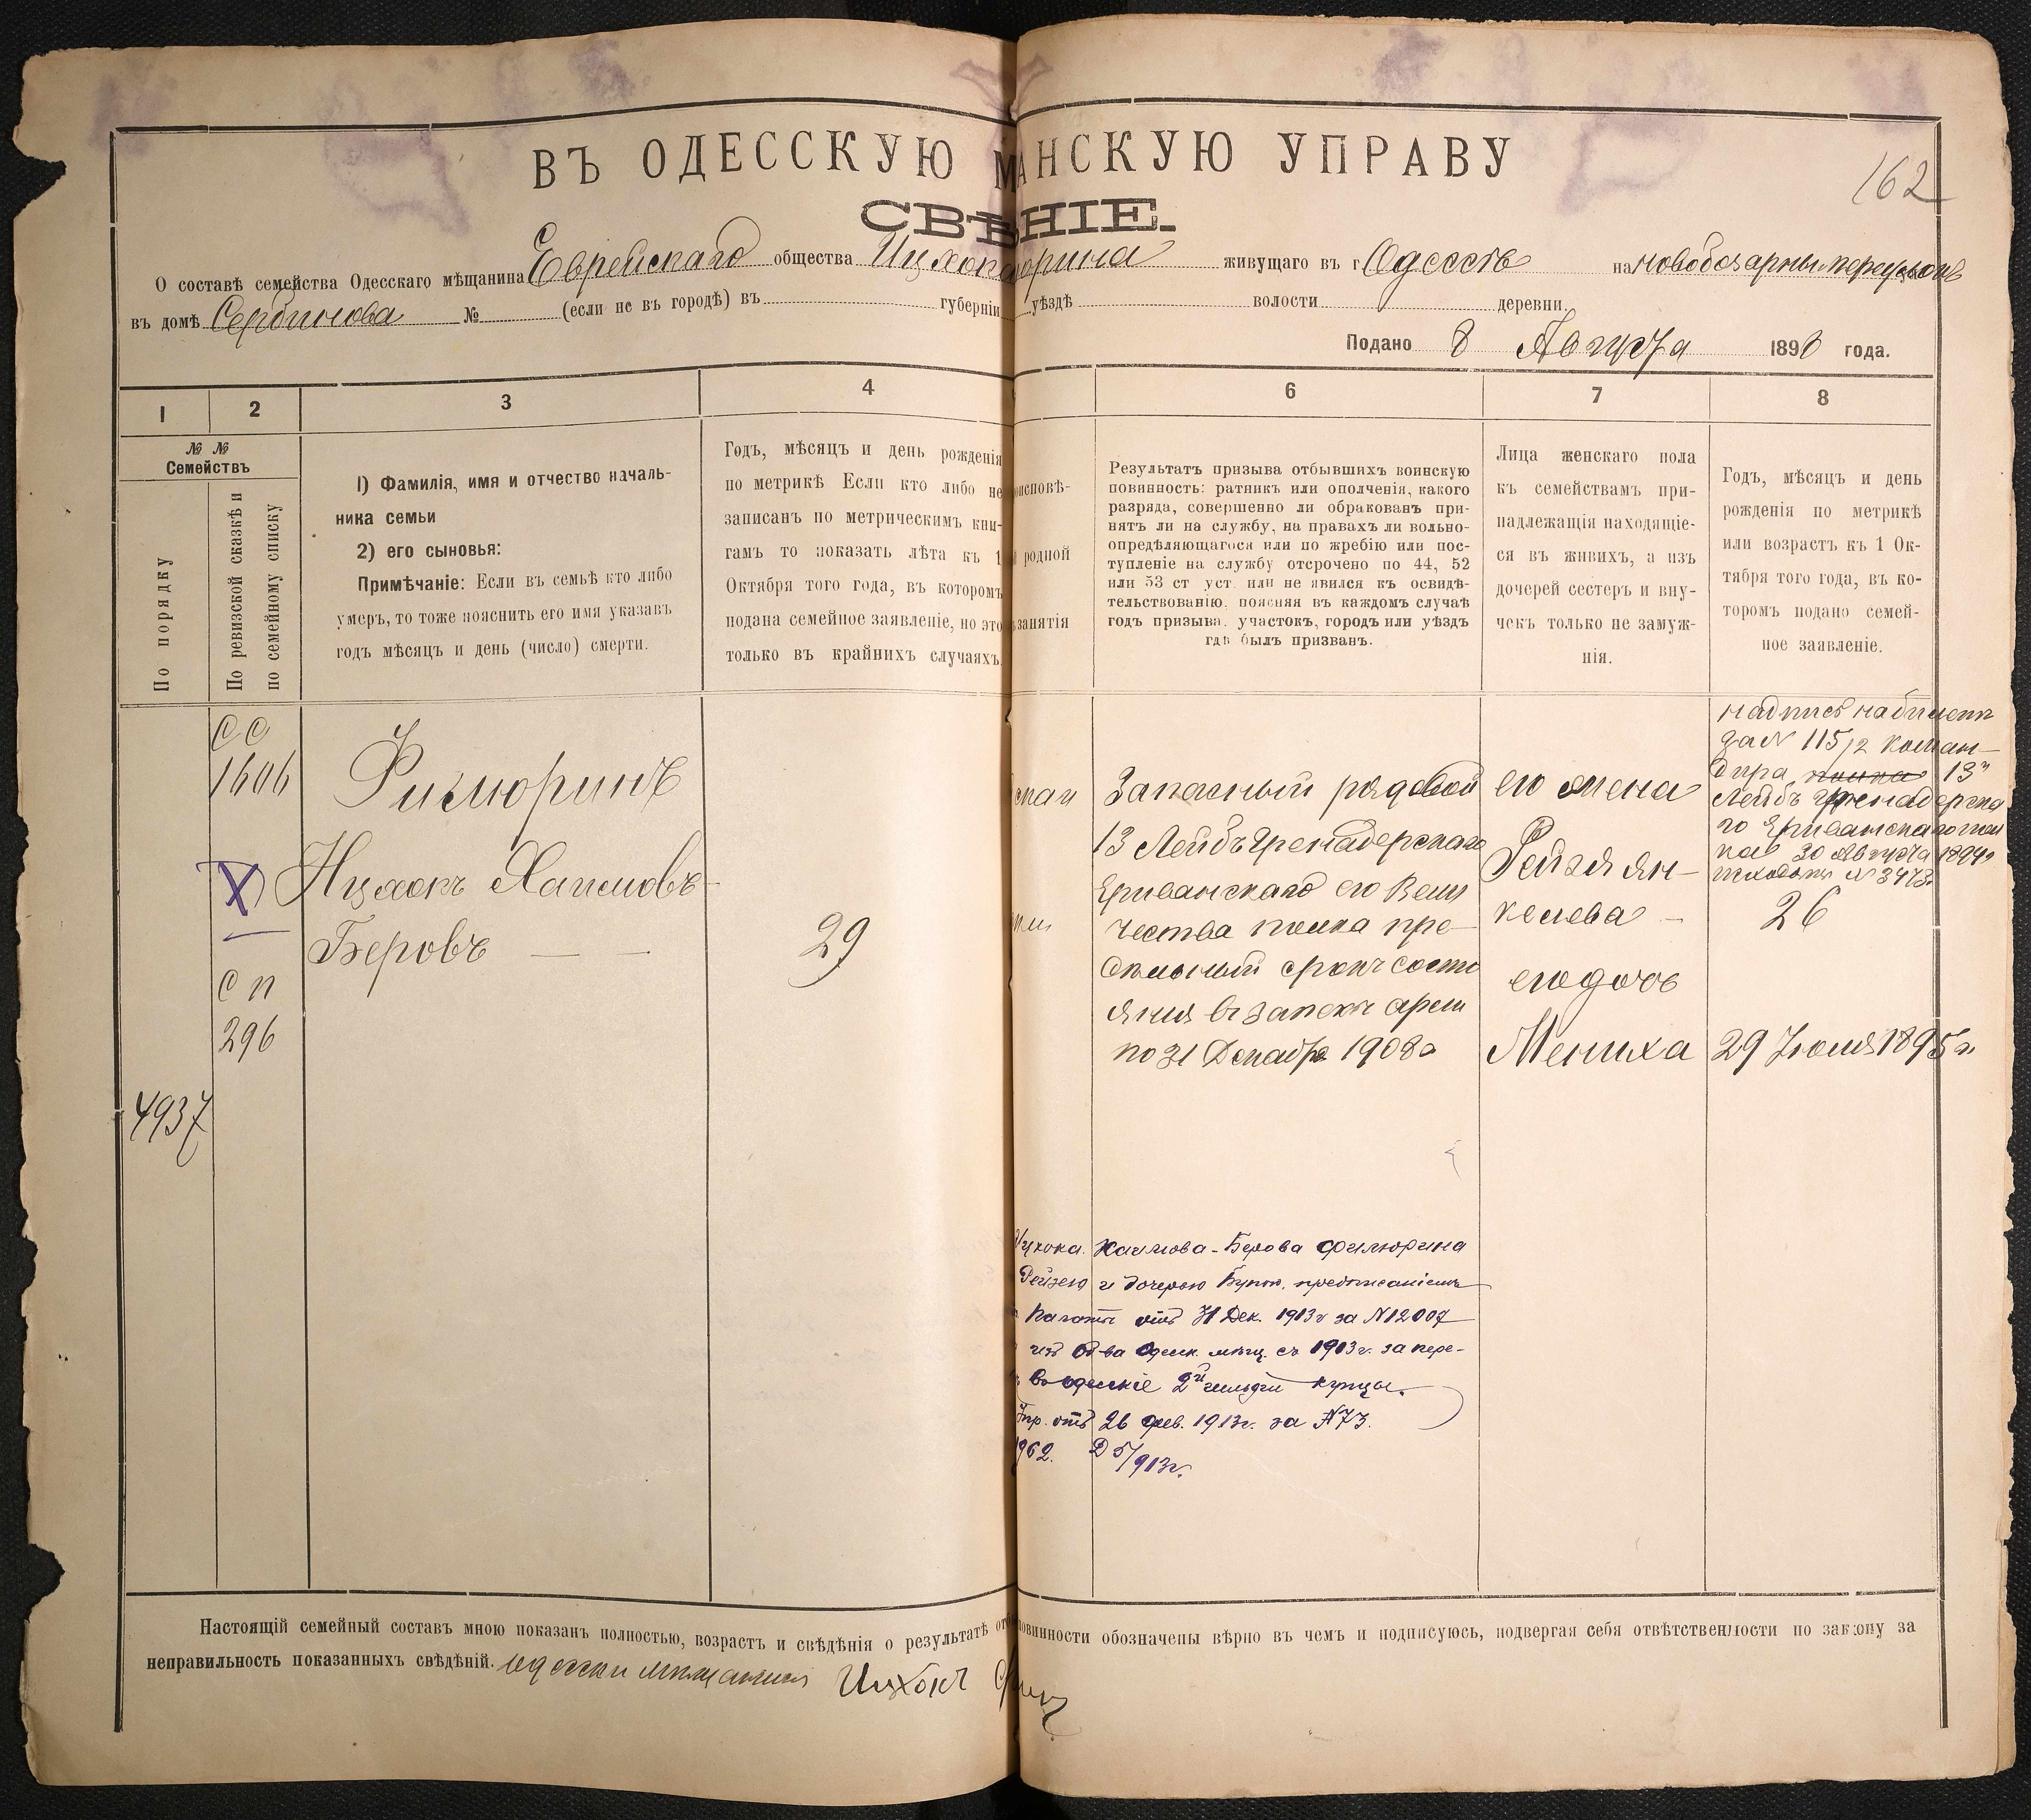 ВЪ ОДЕССКУЮ МАНСКУЮ УПРАВУ
162
СВѢНІЕ.
О составѣ семейства Одесскаго мѣщанина Еврейскаго общества Ицхока живущаго въ г Одессѣ на
въ домѣ Сербинова № (если не въ городѣ) въ губерніи уѣздѣ волости деревни
Подано 8 Августа 1898 года.
1 2 3 4 6 7 8
№ №
Семействъ
По порядку
По ревизской сказкѣ и
по семейному списку
1) Фамилія, имя и отчество началь-
ника семьи
2) его сыновья:
Примѣчаніе: Если въ семьѣ кто либо
умеръ, то тоже пояснить его имя указавъ
годъ мѣсяцъ и день (число) смерти.
Годъ, мѣсяцъ и день рожденія
по метрикѣ Если кто либо не
записанъ по метрическимъ кни-
гамъ то показать лѣта къ 1
Октября того года, въ которомъ
подана семейное заявленіе, но это
только въ крайнихъ случаяхъ
оисповѣ-
родной
занятія
Результатъ призыва отбывшихъ воинскую
повинность: ратникъ или ополченія, какого
разряда, совершенно ли обракованъ при-
нятъ ли на службу, на правахъ ли вольно-
опредѣляющагося или по жребію или пос-
тупленіе на службу отсрочено по 44, 52
или 53 ст уст. или не явился къ освидѣ-
тельствованію, поясняя въ каждомъ случаѣ
годъ призыва, участокъ, городъ или уѣздъ
гдѣ былъ призванъ.
Лица женскаго пола
къ семействамъ при-
надлежащія находящіе-
ся въ живихъ, а изъ
дочерей сестеръ и вну-
чекъ только не замуж-
нія.
Годъ, мѣсяцъ и день
рожденія по метрикѣ
или возрастъ къ 1 Ок-
тября того года, въ ко-
торомъ подано семей-
ное заявленіе.
СС
1606
Филюринъ
X
Ицхокъ Хаимовъ-
Беровъ
29
сп
296
4937
Запасный рядовой
13 Лейбъ Гренадерскаго
Ериванскаго его Вели
чества полка пре-
дѣльный срокъ состо
янія въ запасѣ арміи
по 31 Декабря 1908 г
его жена
Рейзя Ян-
келева
его дочь
Мениха
надпись на билетѣ
за № 115/12 коман-
дира полка 13
Лейбъ Гренадерска
го Ериванскаго пол
ка 30 Августа 1894 г
№ 3473
26
29 Іюля 1895 г.
Ицхока Хаимова-Берова Филюрина
Рейзею и дочерью предписаніемъ
Палаты отъ 31 Дек. 1913 г за № 12007
изъ об-ва Одесск. мѣщ. съ 1913 г. за пере-
въ одесскіе 2й гильдіи купцы.
Упр. отъ 26 фев. 1913 г. за № 73.
962. Д 5/913 г.
Настоящій семейный составъ мною показанъ полностью, возрастъ и свѣдѣнія о результатѣ отб повинности обозначены вѣрно въ чемъ и подписуюсь, подвергая себя отвѣтственности по закону за
неправильность показанныхъ свѣдѣній. Одесскій мѣщанинъ Ицхокъ